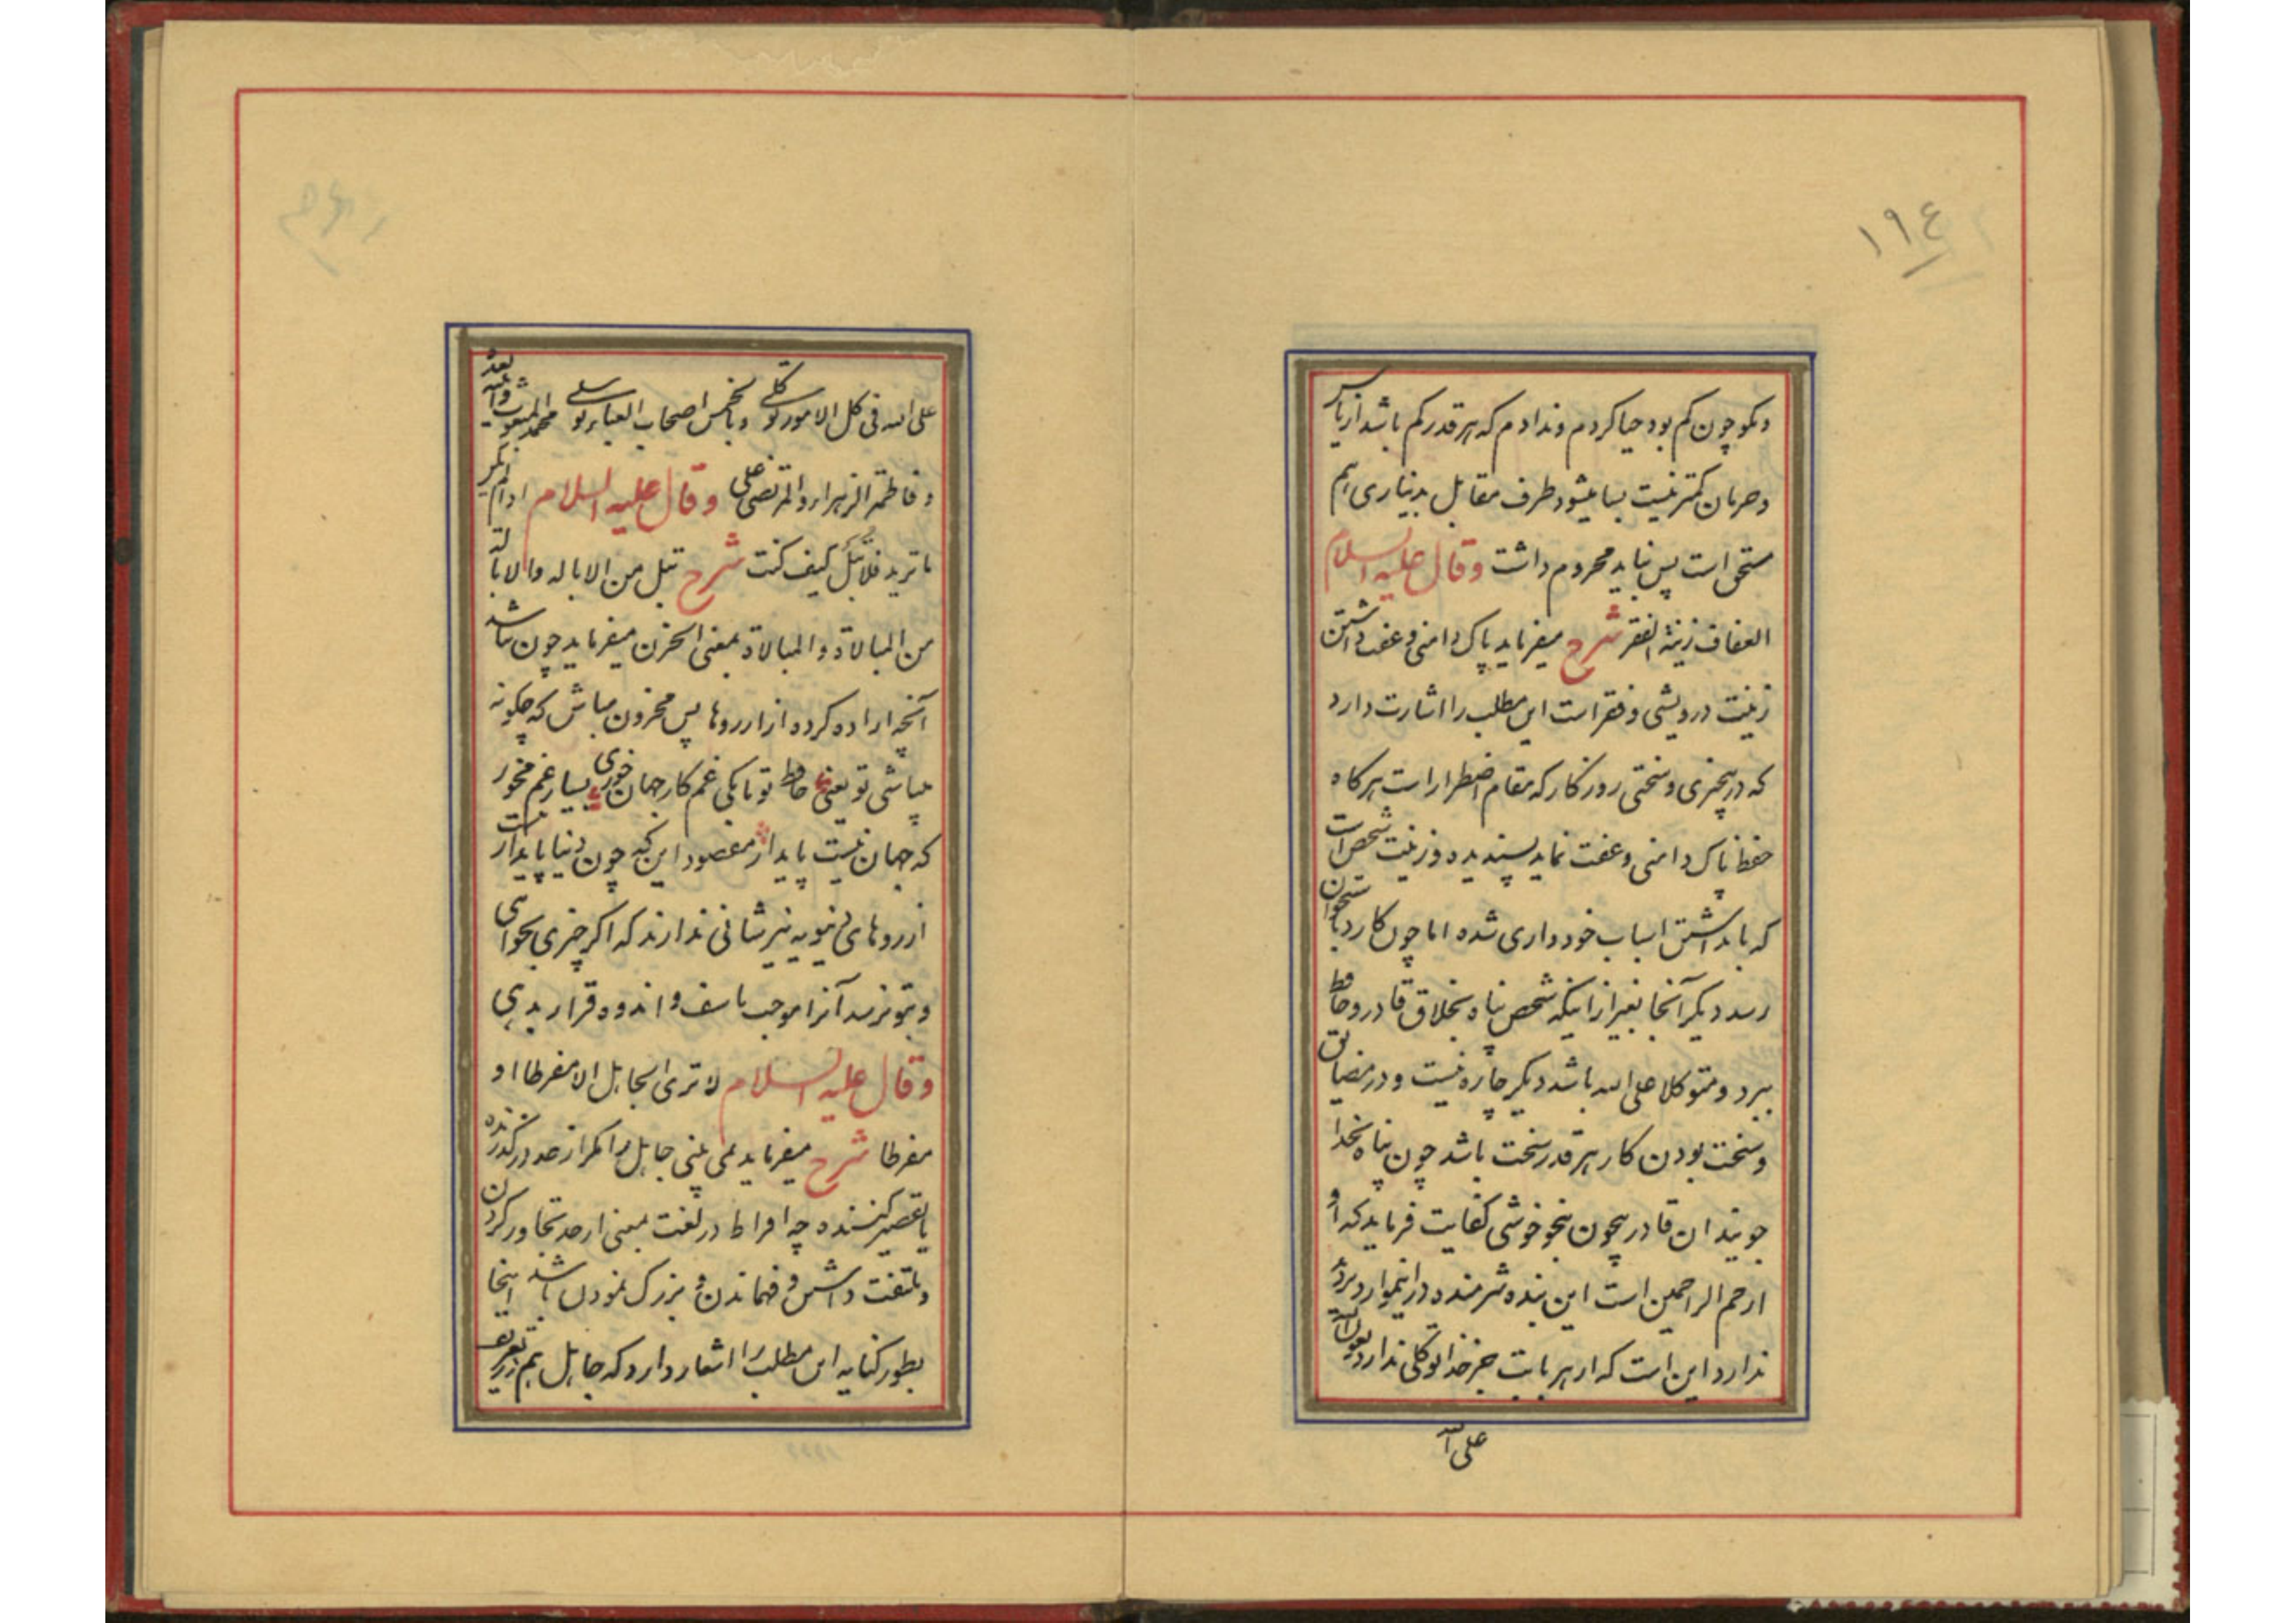 ١٩٤
و کمو چون کم بود حیا کردم و ندادم که هر قدر کم باشد از یاس
و حرمان کمتر نیست بسا میشود طرف مقابل بدیناری هم
مستحق است پس نباید محروم داشت وقال علیه السلام
العفاف زینة الفقر شرح میفرماید پاک دامنی و عفت داشتن
زینت درویشی و فقر است این مطلب را اشارت دارد
که در بیچیزی و سختی روزکار که مقام اضطرار است هرکاه
حفظ پاک دامنی و عفت نماید پسندیده و زینت شخص است
که با داشتن اسباب خود داری شده اما چون کارد باستخوان
رسد دیکر آنجا بغیر از اینکه شخص پناه بخلاق قادر و حافظ
ببرد و متوکلا علی الله باشد دیکر چاره نیست و در مضایق
و سخت بودن کار هر قدر سخت باشد چون پناه بخدا
جویند ان قادر بیچون بنحو خوشی کفایت فرماید که او
ارحم الراحمین است این بنده شرمنده در
ندارد این است که از هر بابت جز خدا توکلی ندارد
علی الله
علی الله فی کل الامور توکلی و بالخمس اصحاب العباء توسلی محمد المبعوث وابنیه بعده
و فاطمة الزهراء والمرتضی علی وقال علیه السلام اذا لم یکن
ما ترید فلا تبل کیف کنت شرح تبل من الاباله والابالة
من المبالاة والمبالاة بمعنی الحزن میفرماید چون نباشد
آنچه اراده کرده از ارزوها پس محزون مباش که چکونه
میباشی تو یعنی حافظ تو تا بکی غم کار جهان خوری بسیار غم مخور
که جهان نیست پایدار مقصود این که چون دنیا پایدار نیست
ارزوهای دنیویه نیز شانی ندارند که اکر چیزی بخواهی
و بتو نرسد آنرا موجب تاسف و اندوه قرار بدهی
وقال علیه السلام لا تری الجاهل الا مفرطا او
مفرطا شرح میفرماید نمی بینی جاهل را مکر از حد در کذرنده
یا تقصیر کننده چه افراط در لغت بمعنی از حد تجاوز کردن
و ملتفت داشتن و فهماندن و بزرک نمودن باشد اینجا
بطور کنایه این مطلب را اشعار دارد که جاهل هم